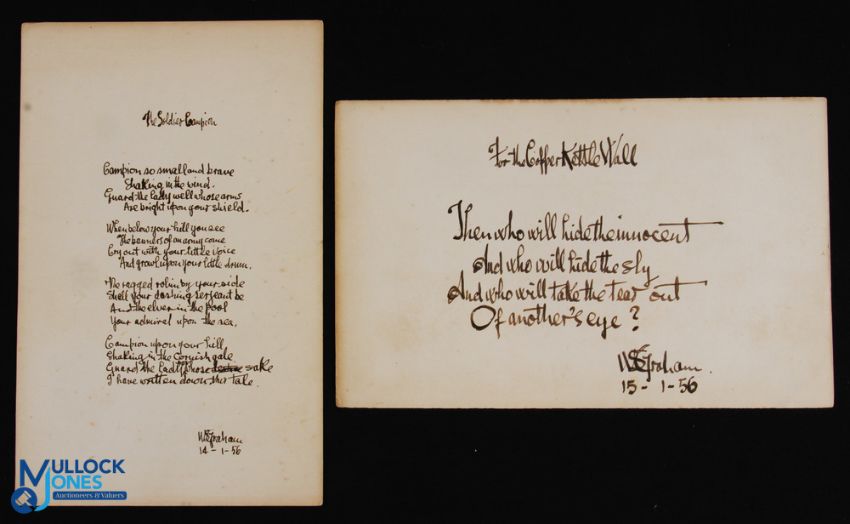 The Soldier Campion
Campion so small and brave
Shaking in the wind.
Guard the lady well whose arms
Are bright upon your shield.
When below your hill you see
The banners of an army come
Cry out with your little voice
And growl upon your little drum.
The ragged robin by your side
Shall your dashing sergeant be
And the elver in the pool
Your admiral upon the sea.
Campion upon your hill
Shaking in the Cornish gale
Guard the lady for whose sake
I have written down this tale.
WSGraham
14-1-56
For the Copper Kettle Wall
Then who will hide the innocent
And who will hide the sly
And who will take the tear out
Of another's eye?
WSGraham.
15-1-56
MULLOCK
JONES
Auctioneers & Valuers